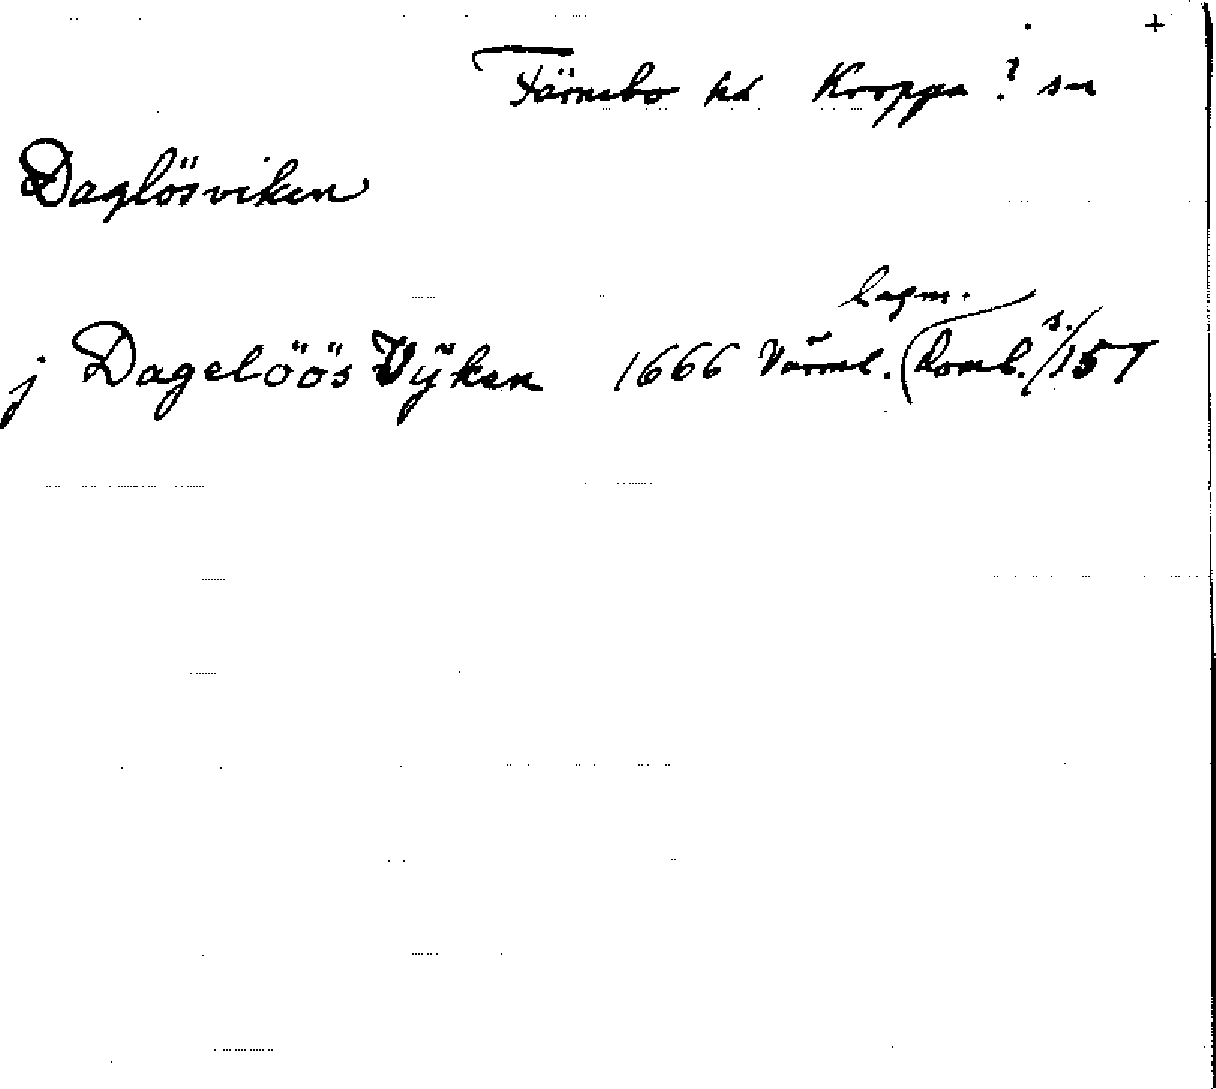 +
Färnebo hd Kroppa ? sn
Daglösviken
lagm.
j Dagelöös Vijken 1666 Värml. (Domb. s. 157